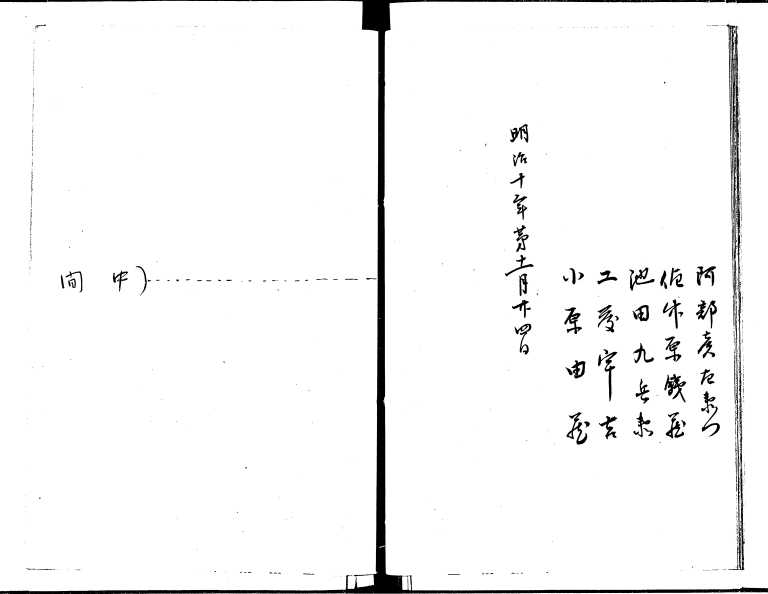 阿部彦左衛門
佐竹原鐵蔵
池田九兵衛
工藤宇吉
小原由蔵
明治十年第十一月廿四日
中間